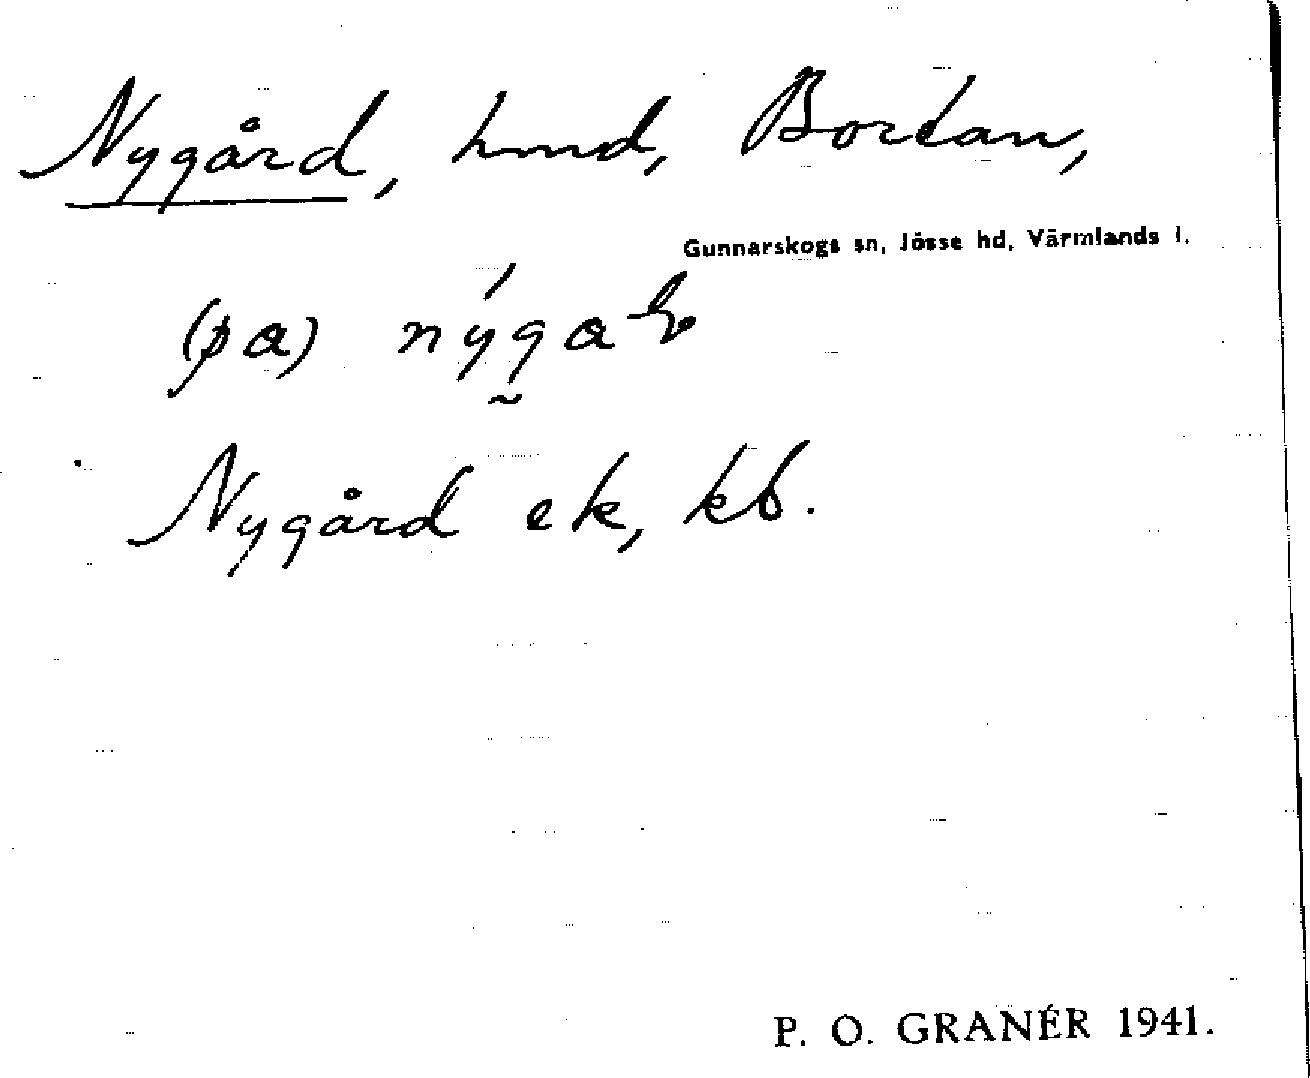 Nygård, hmd, Bortan,
Gunnarskogs sn, Jösse hd, Värmlands l.
(pa) nýga
Nygård ek, kb.
P. O. GRANÉR 1941.